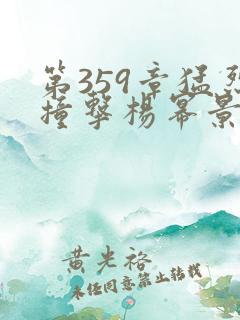 第359章猛烈
撞擊楊冪景
黄光裕
未经同意禁止转载